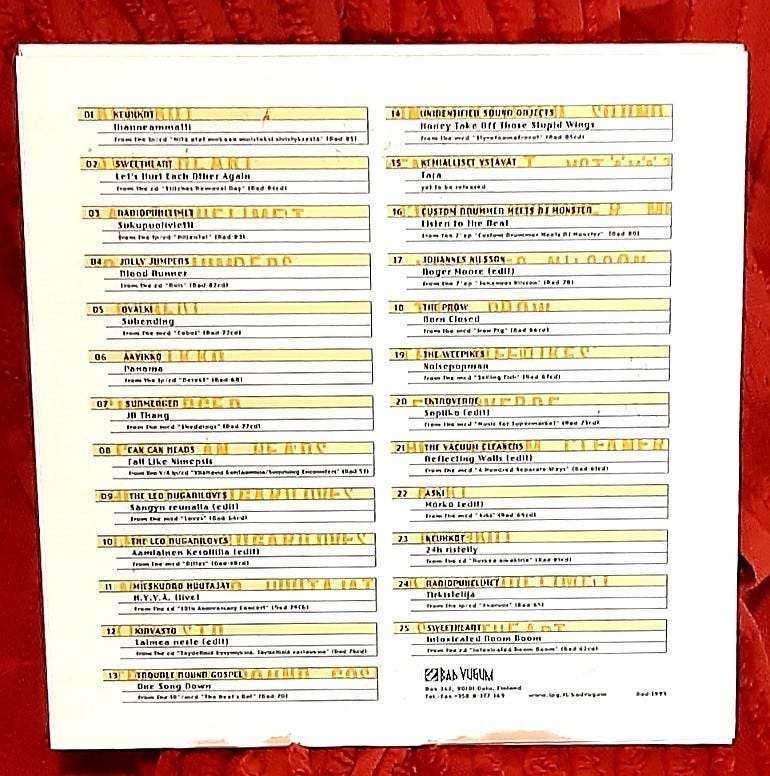 01 KEUHKOT
Ihanneammatti
from the lp/cd "Mitä otat mukaan muistoksi sivistyksestä" (Bad-85)
02 SWEETHEART
Let's Hurt Each Other Again
from the cd "Stitches Removal Day" (Bad-84cd)
03 RADIOPUHELIMET
Sukupuolivietti
from the lp/cd
04 JOLLY JUMPERS
Blood Runner
from the cd (Bad-82cd)
05 OVALKI
Suhending
from the mcd (Bad-72cd)
06 AAVIKKO
Panama
from the lp/cd "Derek!" (Bad-68)
07 SUBMERGED
JB Thang
from the mcd "Sheddings" (Bad-77cd)
08 CAN CAN HEADS
Fall Like Nimepsis
from the V/A lp/cd
09 THE LEO BUGARILOVES
Sängyn reunalla (edit)
from the mcd "Loves" (Bad-64cd)
10 THE LEO BUGARILOVES
Aamiainen Kesoililla (edit)
from the mcd
11 MIESKUORO HUUTAJAT
H.Y.Y.Ä. (live)
from the cd "10th Anniversary Concert"
12 KIRVASTO
Laimea neste (edit)
from the cd "Täydellisiä kysymyksiä, täydellisiä vastauksia" (Bad-76cd)
13 TROUBLE BOUND GOSPEL
One Song Down
from the 10"/mcd "The Beat's Out" (Bad-70)
14 UNIDENTIFIED SOUND OBJECTS
Honey Take Off Those Stupid Wings
from the mcd "Styrofoamafrorot" (Bad-83cd)
15 KEMIALLISET YSTÄVÄT
Tara
yet to be released
16 CUSTOM DRUMMER MEETS DJ MONSTER
Listen to the Beat
from the 7"ep "Custom Drummer Meets DJ Monster" (Bad-80)
17 JOHANNES NILSSON
Roger Moore (edit)
from the 7"ep "Johannes Nilsson" (Bad-78)
18 THE PROW
Born Closed
from the mcd "Iron Pig" (Bad-86cd)
19 THE WEEPIKES
Noisepopman
from the mcd "Selling Fish" (Bad-67cd)
20 EKTROVERDE
Sopiiko (edit)
from the mcd "Music for Supermarket" (Bad-73cd)
21 THE VACUUM CLEANERS
Reflecting Walls (edit)
from the mcd "A Hundred Separate Ways" (Bad-61cd)
22 ASKI
Mörkö (edit)
from the mcd "Aski" (Bad-69cd)
23 KEUHKOT
24h risteily
from the cd
24 RADIOPUHELIMET
Tirkistelijä
from the lp/cd (Bad-65)
25 SWEETHEART
Intoxicated Boom Boom
from the cd "Intoxicated Boom Boom" (Bad-62cd)
BAD VUGUM
Box 362, 90101 Oulu, Finland
Tel/fax +358 8 377 369 www.lpg.fi/badvugum Bad-1999